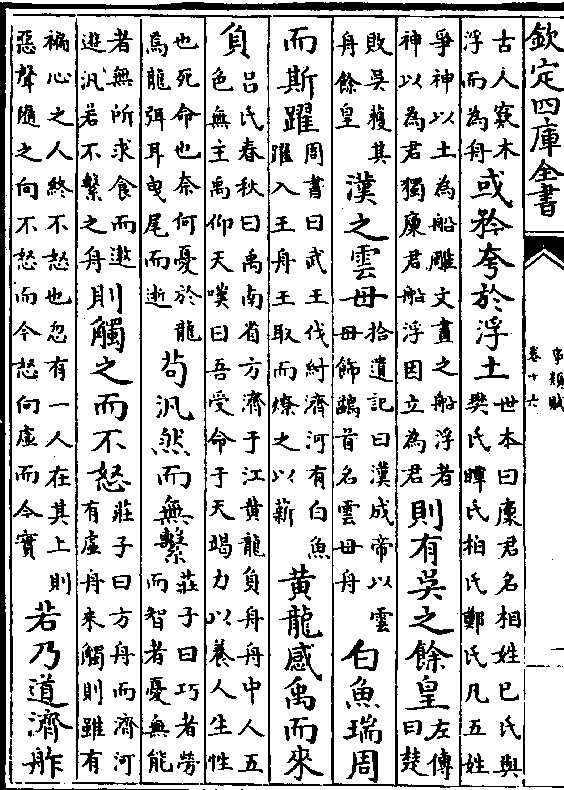 欽定四庫全書
事類賦
卷十六
古人窽木浮而為舟或矜夸於浮土世本曰廩君名相姓已氏與樊氏瞫氏柏氏鄭氏凡五姓
爭神以土為船雕文畫之船浮者神以為君獨廩君船浮因立為君則有吳之餘皇左傳曰楚
敗吳獲其舟餘皇漢之雲母拾遺記曰漢成帝以雲母飾鷁首名雲母舟白魚瑞周
而斯躍周書曰武王伐紂濟河有白魚躍入王舟王取而燎之以薪黄龍感禹而來
負吕氏春秋曰禹南省方濟于江黄龍負舟舟中人五色無主禹仰天嘆曰吾受命于天竭力以養人生性
也死命也奈何憂於龍焉龍弭耳曳尾而逝苟汎然而無繫莊子曰巧者勞而智者憂無能
者無所求食而遨遊汎若不繫之舟則觸之而不怒莊子曰方舟而濟河有虚舟來觸則雖有
褊心之人終不怒也忽有一人在其上則惡聲隨之向不怒而今怒向虚而今實若乃道濟舴